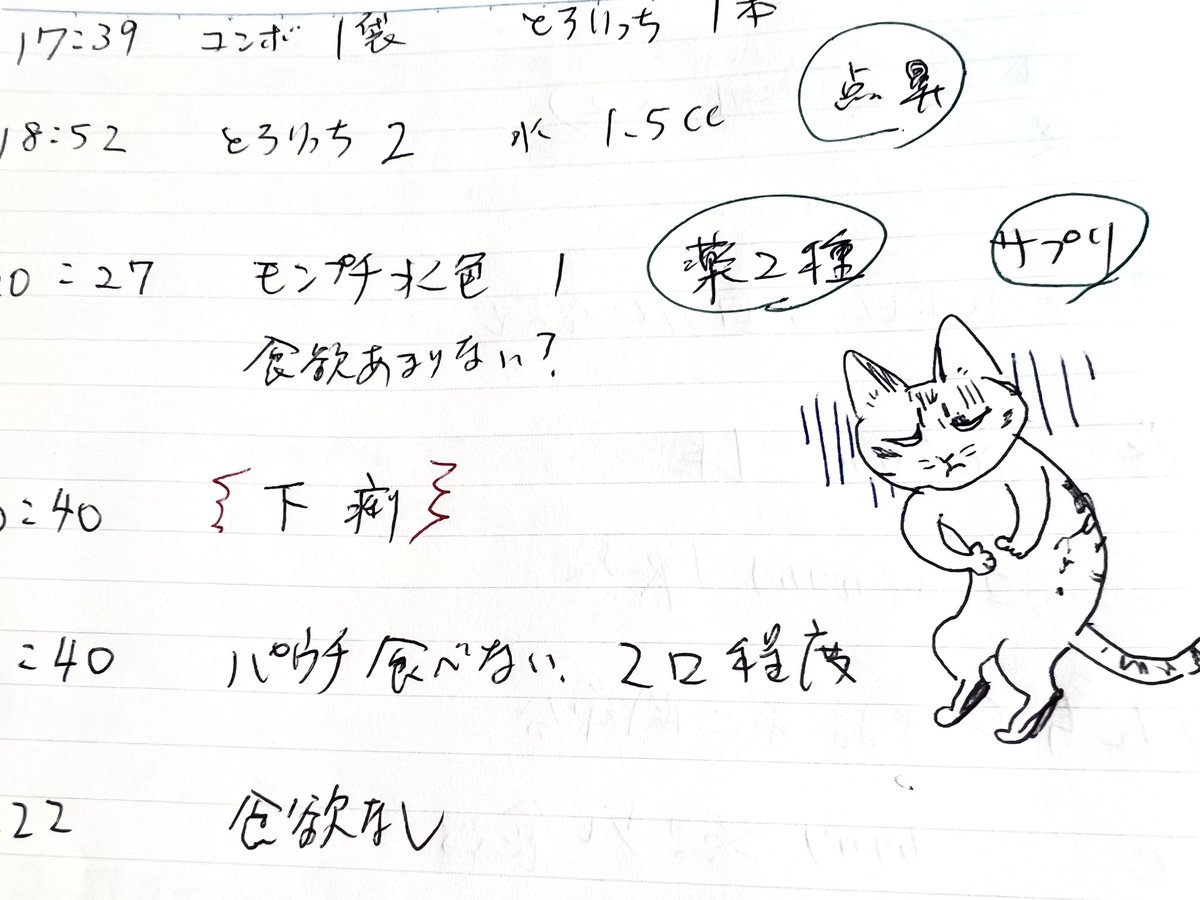 17:39 コンボ 1袋 とろりっち 1本
点鼻
18:52 とろりっち 2 水 1.5cc
0:27 モンプチ水色 1 薬2種 サプリ
食欲あまりない?
:40 下痢
:40 パウチ食べない、2口程度
22 食欲なし